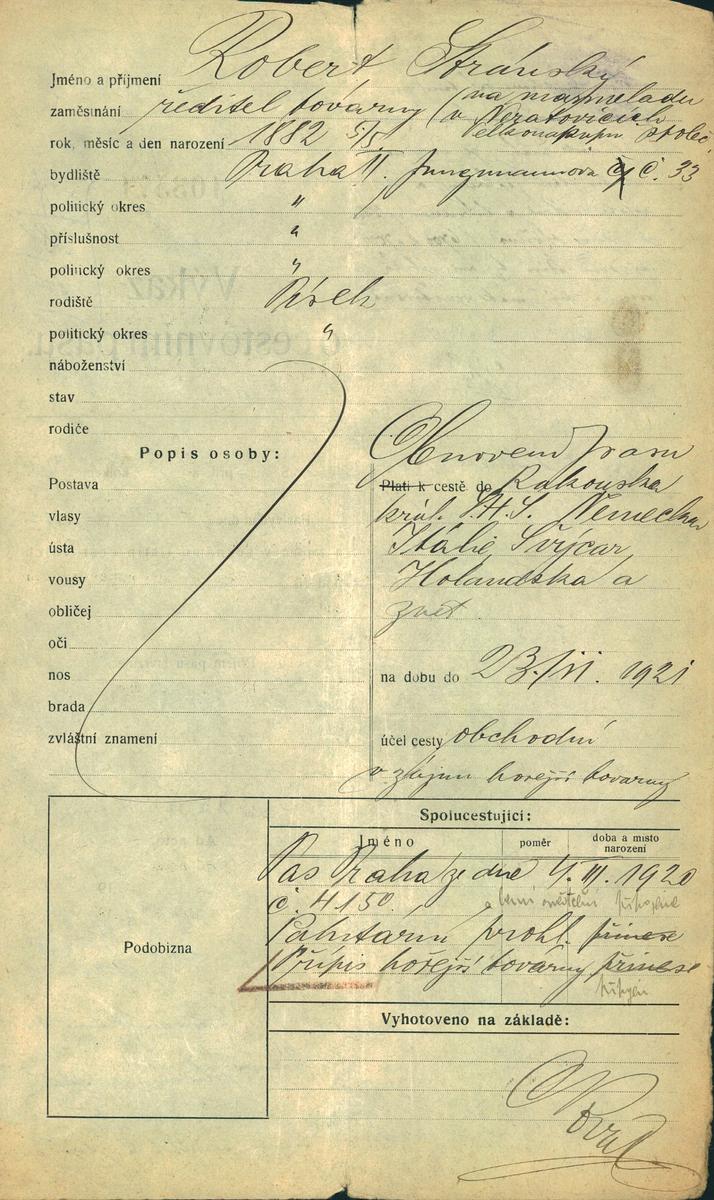 Jméno a příjmení Robert Stránský
zaměstnání ředitel továrny (na marmeladu
v Neratovicích
rok, měsíc a den narození 1882 5/5 společ.
bydliště Praha II. Jungmannova č. 33
politický okres "
příslušnost "
politický okres "
rodiště Písek
politický okres "
náboženství
stav
rodiče
Popis osoby:
Postava
vlasy
ústa
vousy
obličej
oči
nos
brada
zvláštní znamení
Obnovení pasu
Platí k cestě do Rakouska
král. S.H.S. Německa
Itálie, Švýcar,
Holandska a
zpět.
na dobu do 23./VI. 1921
účel cesty obchodní
v zájmu hořejší továrny
Podobizna
Spolucestující:
Jméno poměr doba a místo narození
Pas Praha ze dne 4. III. 1920
č. 4150.
prohl. přinese
Přípis hořejší továrny přinese
připojen
Vyhotoveno na základě: